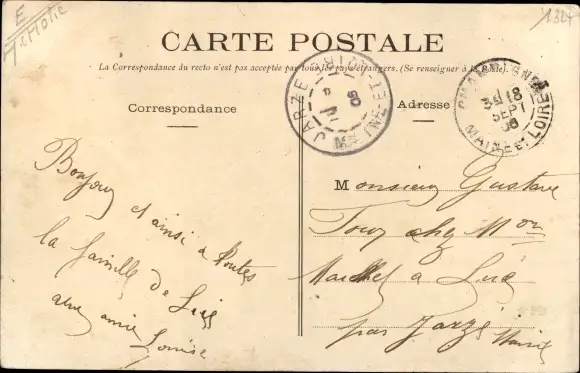 E
1324
CARTE POSTALE
La Correspondance du recto n'est pas acceptée par tous les pays étrangers. (Se renseigner à la Poste).
Correspondance
Adresse
JARZÉ MAINE-ET-LOIRE
18
SEPT
06
MAINE-ET-LOIRE
Bonjour et ainsi à toutes
la famille de Lué
une amie
Louise
Monsieur Gustave
Touy chez Mon
a Lué
par Jarzé